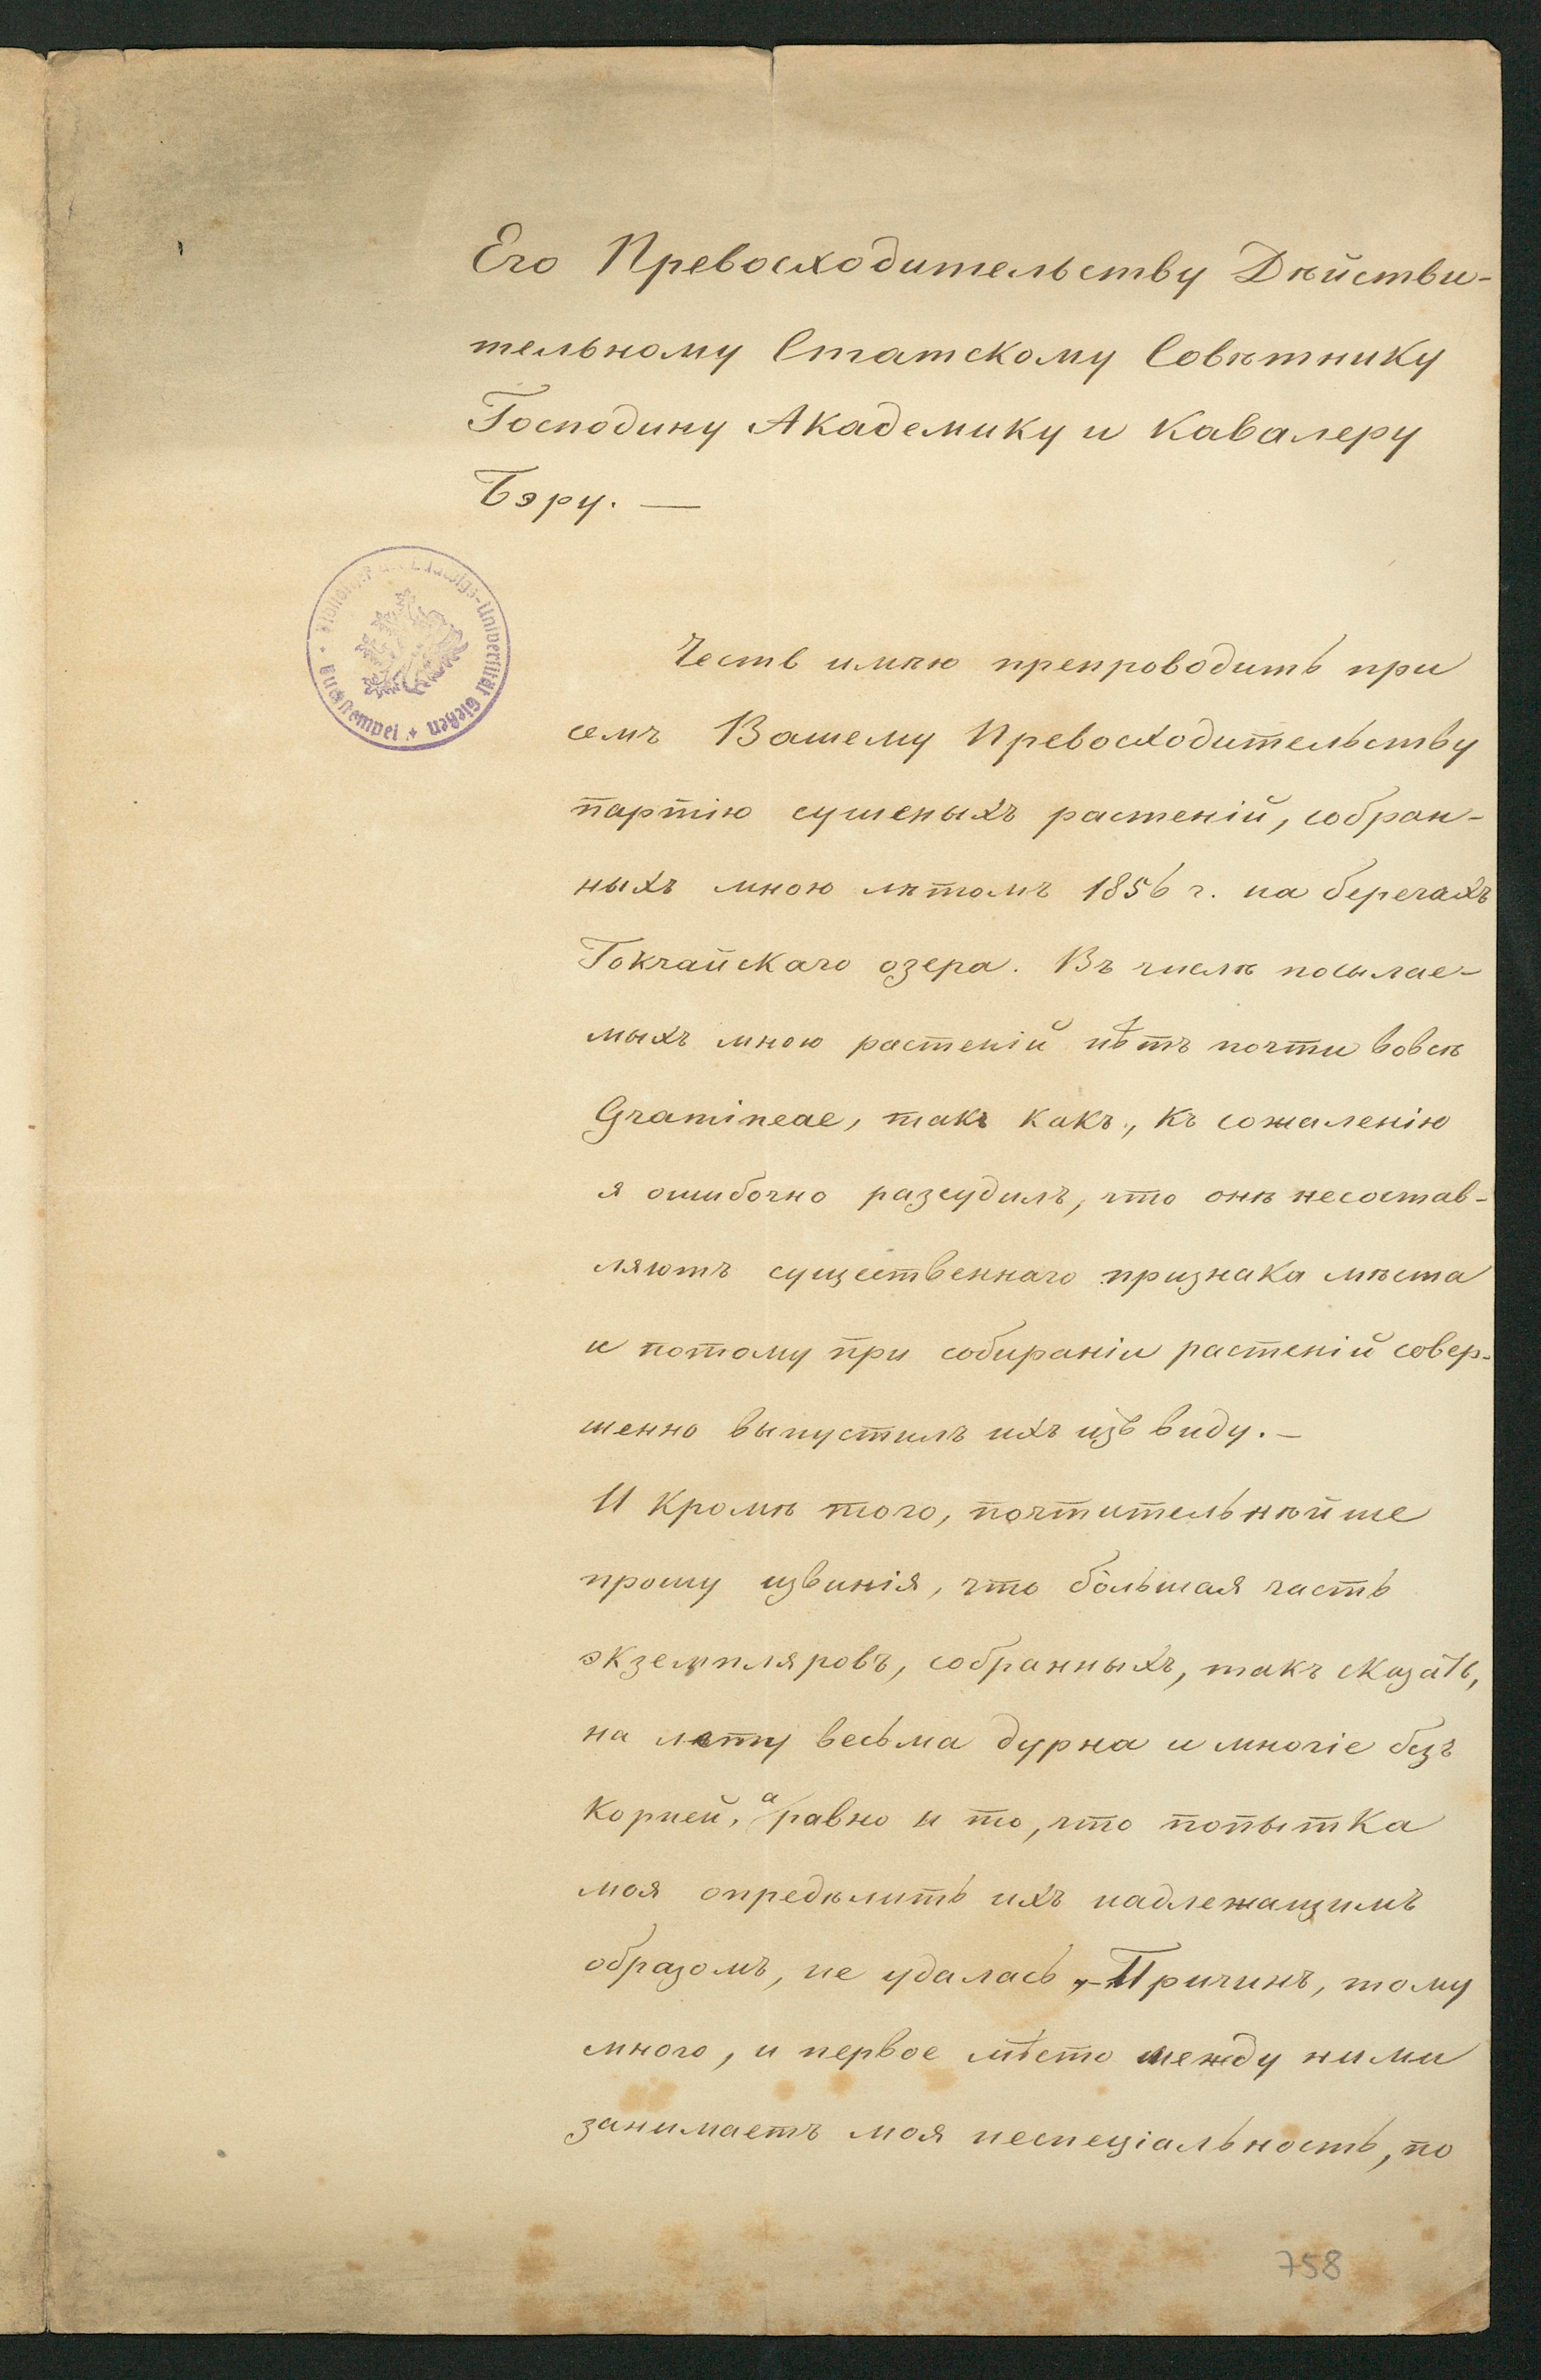 Его Превосходительству Дѣйстви-
тельному Статскому Совѣтнику
Господину Академику и Кавалеру
Бэру. —
Bibliothek der Ludwigs-Universität Gießen * Buchstempel *
Честь имѣю препроводить при
семъ Вашему Превосходительству
партію сушеныхъ растеній, собран-
ныхъ мною лѣтомъ 1856 г. на берегахъ
Гокчайскаго озера. Въ числѣ посылае-
мыхъ мною растеній нѣтъ почти вовсѣ
Gramineae, такъ какъ, къ сожаленію
я ошибочно разсудилъ, что онѣ несостав-
ляютъ существеннаго признака мѣста
и потому при собираніи растеній совер-
шенно выпустилъ ихъ изъ виду. —
И кромѣ того, почтительнѣйше
прошу извинія, что бо́льшая часть
экземпляровъ, собранныхъ, такъ сказать,
на лету весьма дурна и многіе безъ
корней, а равно и то, что попытка
моя опредѣлить ихъ надлежащимъ
образомъ, не удалась, – Причинъ, тому
много, и первое мѣсто между ними
занимаетъ моя неспеціальность, по
758